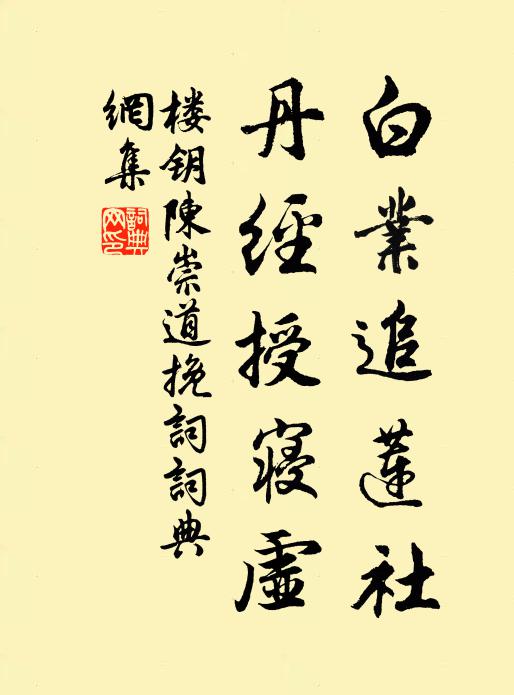 白業追蓮社
丹經授寢虛
楼钥陳崇道挽詞詞典
網集
詞典
网印